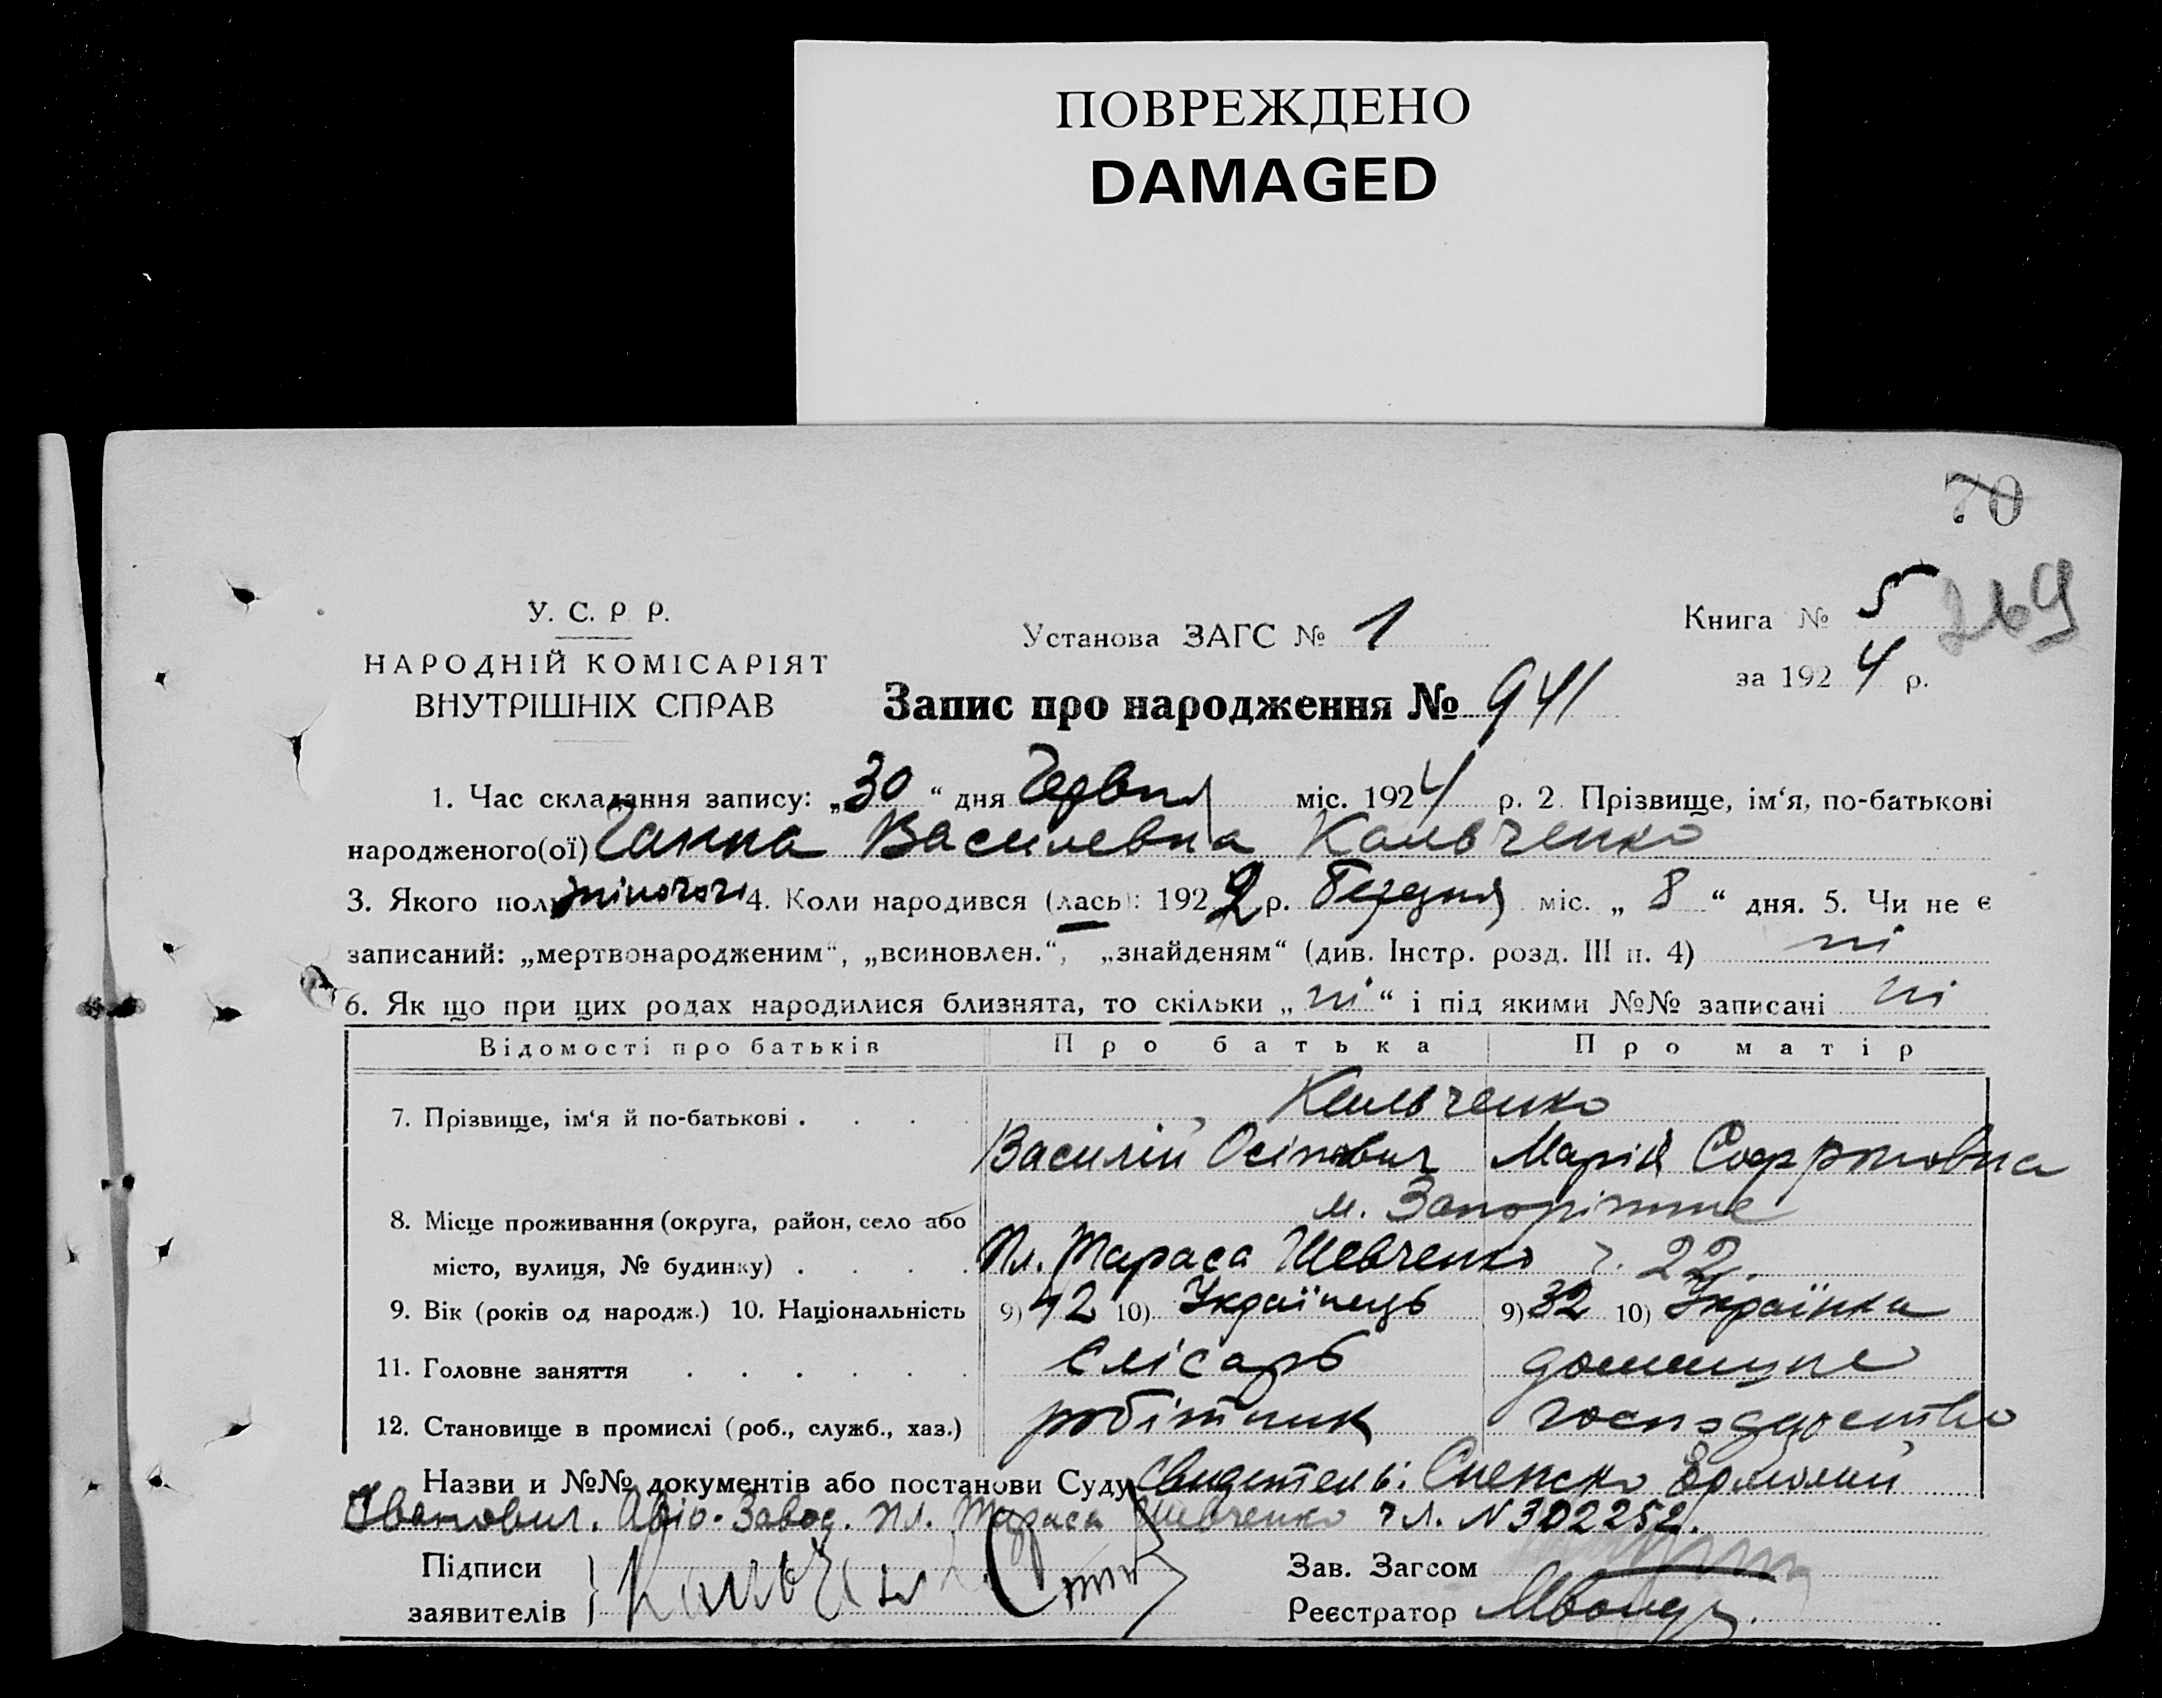 ПОВРЕЖДЕНО
DAMAGED
70
269
У. С. Р. Р.
НАРОДНІЙ КОМІСАРІЯТ
ВНУТРІШНІХ СПРАВ
Установа ЗАГС № 1
Книга № 5
за 1924 р.
Запис про народження № 941
1. Час складання запису: „30“ дня Червня міс. 1924 р. 2. Прізвище, ім‘я, по-батькові
народженого(ої) Ганна Василевна Кальченко
3. Якого полу жіночого 4. Коли народився (лась): 1922 р. Березня міс. „8“ дня. 5. Чи не є
записаний: „мертвонародженим“, „всиновлен.“, „знайденям“ (див. Інстр. розд. III п. 4) ні
6. Як що при цих родах народилися близнята, то скільки „ні“ і під якими №№ записані ні
Відомості про батьків Про батька Про матір
7. Прізвище, ім‘я й по-батькові . . . . Кальченко
Василій Осіпович Марія Софроновна
8. Місце проживання (округа, район, село або м. Запоріжжє
місто, вулиця, № будинку) . . . . Пл. Тараса Шевченко ч. 22.
9. Вік (років од народж.) 10. Національність 9) 42 10) Українець 9) 32 10) Українка
11. Головне заняття . . . . . . слісарь домашнє
12. Становище в промислі (роб., служб., хаз.) робітник господарство
Назви и №№ документів або постанови Суду Свидетель:
Іванович. Авіо-Завод. пл. Тараса Шевченко чл. N 302252.
Підписи
заявителів
Зав. Загсом
Реєстратор